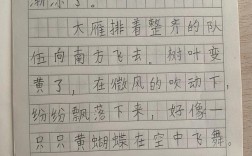 渐凉了。
大雁排着整齐的队
伍向南方飞去。树叶变
黄了，在微风的吹动下，
纷纷飘落下来，好像一
只只黄蝴蝶在空中飞舞